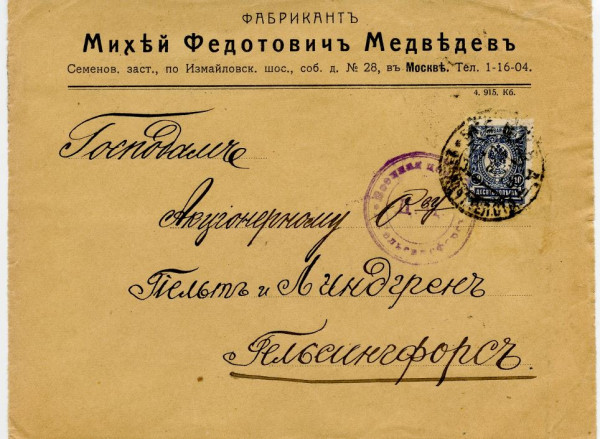 ФАБРИКАНТЪ
Михѣй Федотовичъ Медвѣдевъ
Семенов. заст., по Измайловск. шос., соб. д. № 28, въ Москвѣ. Тел. 1-16-04.
4. 915. Кб.
Господамъ
Акціонерному О-ву
Тельтъ и Линдгренъ
Гельсингфорсъ.